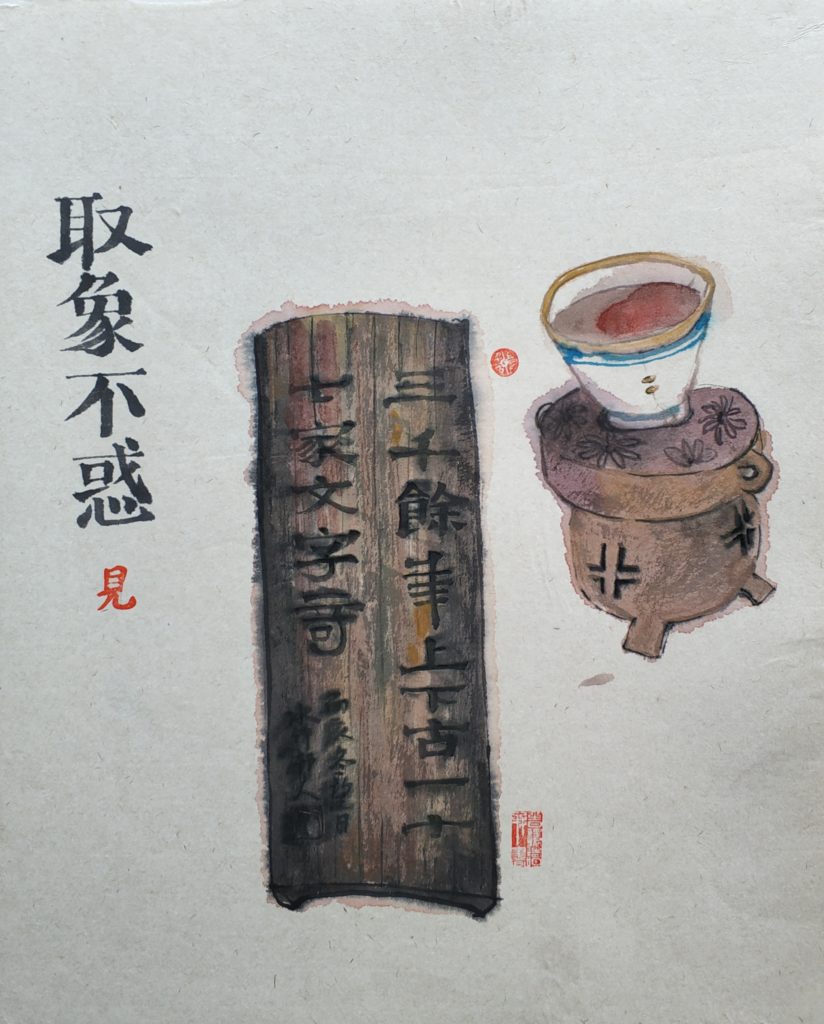 三千餘年上下古一十
七家文字奇
取象不惑
見